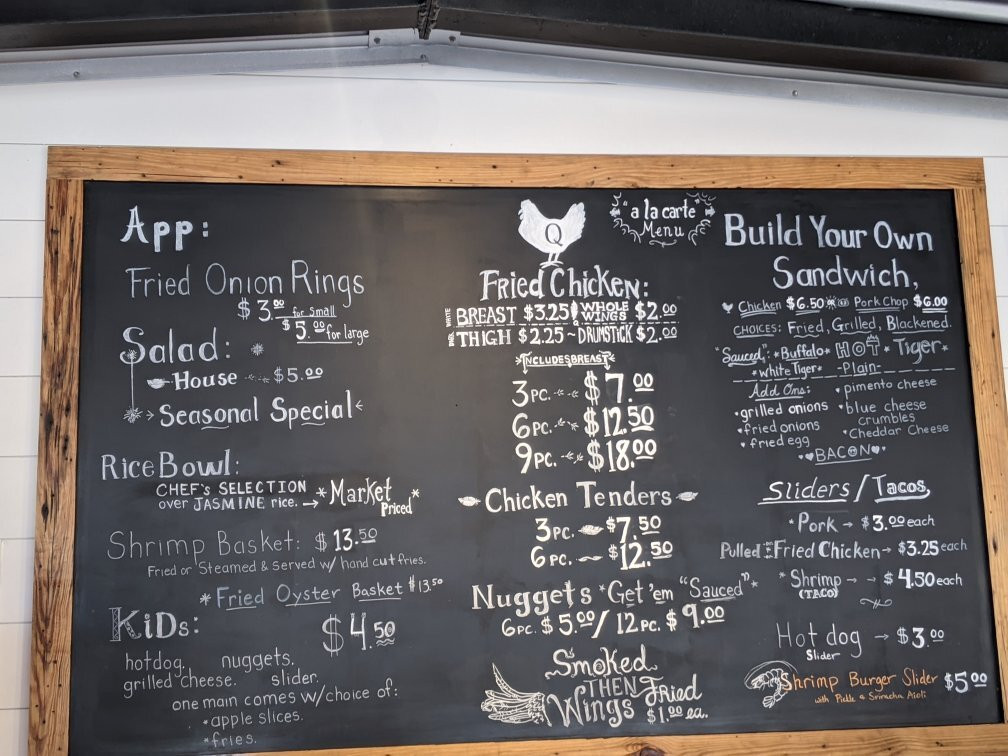 App:
Fried Onion Rings
$3.00 for small
$5.00 for large
Salad:
House $5.00
Seasonal Special
Rice Bowl:
CHEF's SELECTION
over JASMINE rice. → *Market Priced*
Shrimp Basket: $13.50
Fried or Steamed & served w/ hand cut fries.
*Fried Oyster Basket $13.50
KiDs: $4.50
hotdog. nuggets.
grilled cheese. slider.
one main comes w/choice of:
*apple slices.
*fries.
Q
"a la carte"
Menu
Fried Chicken:
WHITE BREAST $3.25 WHOLE WINGS $2.00
THIGH $2.25 ~ DRUMSTICK $2.00
*INCLUDES BREAST*
3PC. $7.00
6PC. $12.50
9PC. $18.00
Chicken Tenders
3PC. $7.50
6PC. $12.50
Nuggets *Get 'em "Sauced"*
6PC. $5.00/ 12PC. $9.00
Smoked
THEN Fried
Wings $1.00 ea.
Build Your Own
Sandwich,
Chicken $6.50 Pork Chop $6.00
CHOICES: Fried, Grilled, Blackened.
"Sauced": *Buffalo* HOT * Tiger*
*White Tiger* -Plain-
Add Ons: •pimento cheese
•grilled onions •blue cheese crumbles
•fried onions •Cheddar Cheese
•fried egg
•♥BACON♥•
Sliders/Tacos,
*Pork → $3.00 each
Pulled Fried Chicken → $3.25 each
*Shrimp → → $4.50 each
(TACO)
Hot dog → $3.00
Slider
Shrimp Burger Slider $5.00
with Pickle & Sriracha Aioli